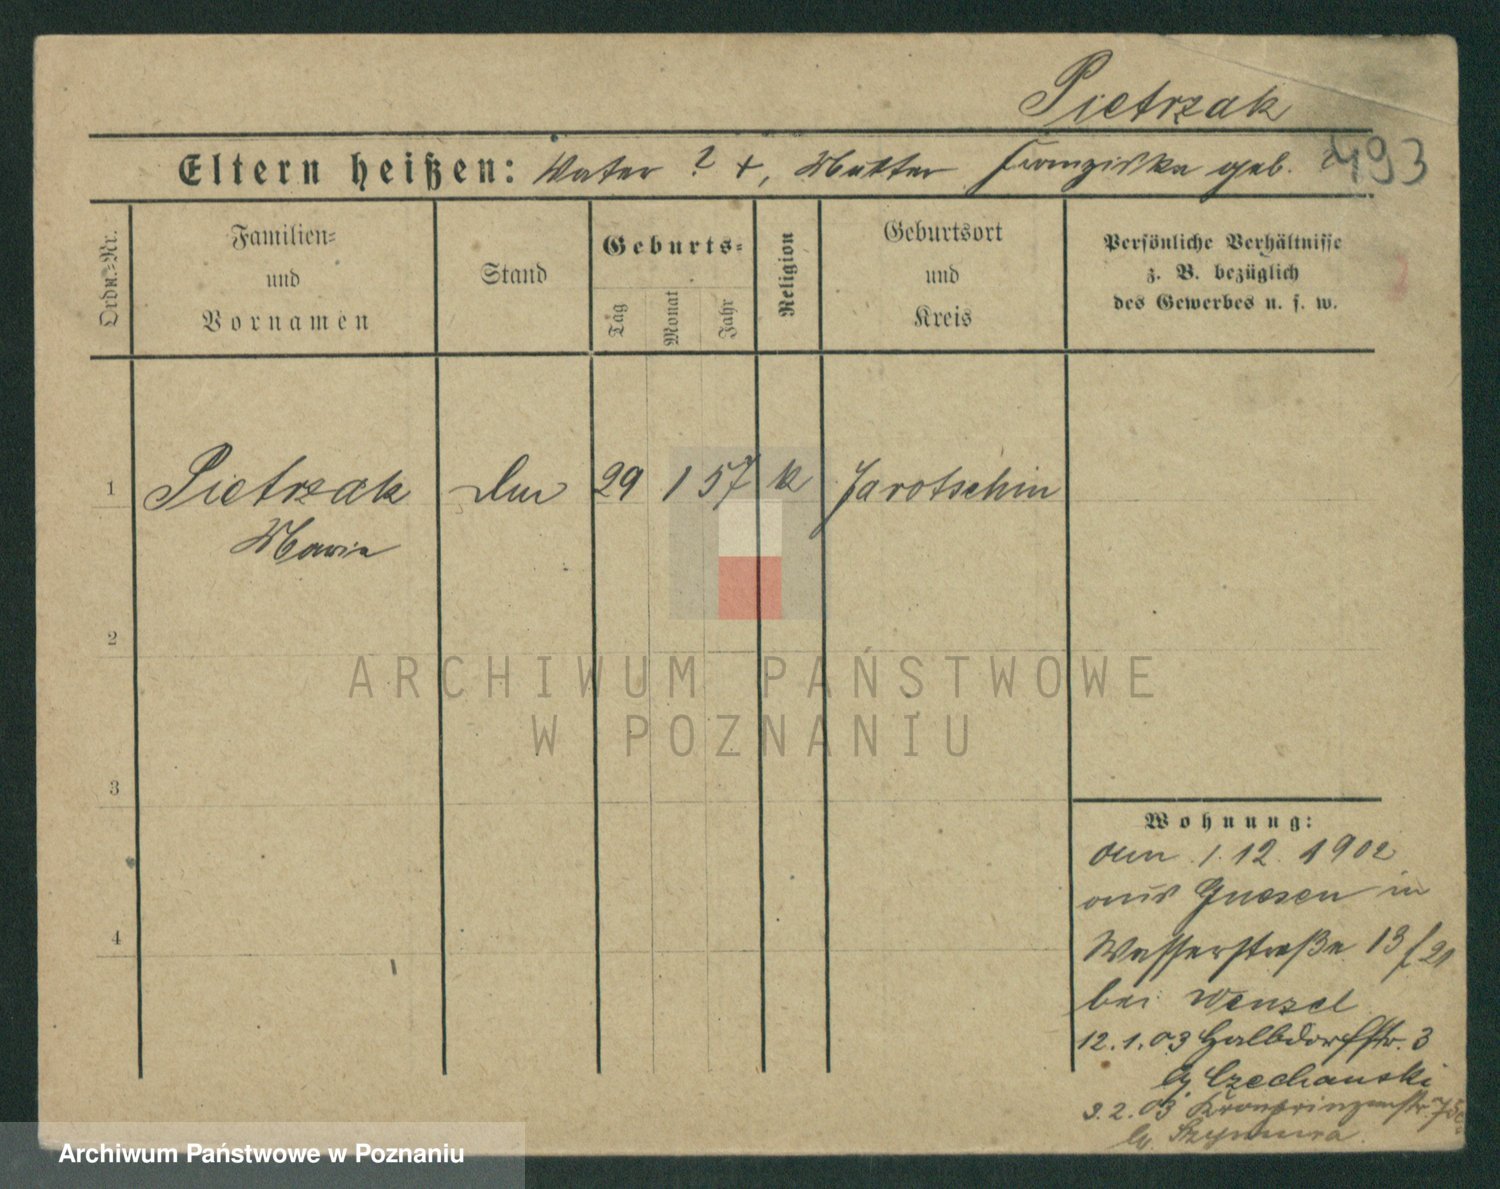 Pietrzak
Eltern heißen: Vater ? +, Mutter Franziska geb. ?
493
Ordn.-Nr.
Familien-
und
Vornamen
Stand
Geburts-
Tag
Monat
Jahr
Religion
Geburtsort
und
Kreis
Persönliche Verhältnisse
z. B. bezüglich
des Gewerbes u. s. w.
1 Pietrzak 29 1 57 k Jarotschin
Maria
2
ARCHIWUM PAŃSTWOWE
W POZNANIU
3
Wohnung:
am 1. 12. 1902
aus Gnesen in
Wasserstraße 13/21
bei Wenzel
12.1.03 Halbdorfstr. 3
b/ Czechanski
3.2.03 Kronprinzenstr.
b/ Szymura
4
Archiwum Państwowe w Poznaniu